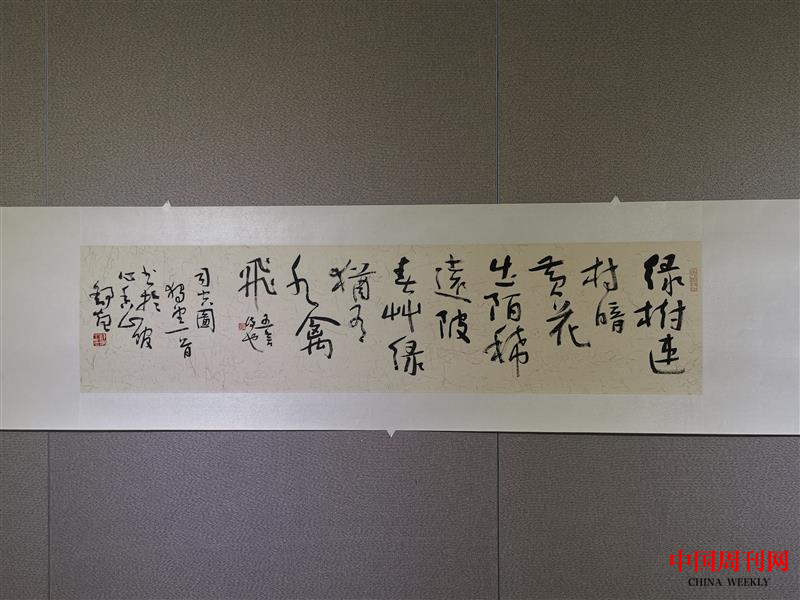 绿树连
村暗
黄花
出陌稀
遠陂
春艸绿
猶有
水禽
飛
司空圖
獨望一首
中国周刊网
CHINA WEEKLY